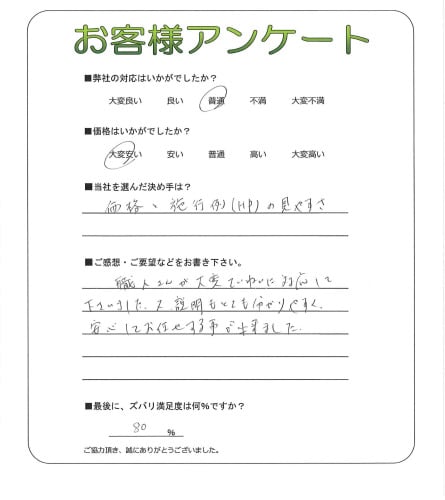 お客様アンケート
■弊社の対応はいかがでしたか？
大変良い 良い 普通 不満 大変不満
■価格はいかがでしたか？
大変安い 安い 普通 高い 大変高い
■当社を選んだ決め手は？
価格、施行例(HP)の見やすさ
■ご感想・ご要望などをお書き下さい。
職人さんが大変ていねいに対応して
下さいました。又説明もとても分かりやすく、
安心してお任せする事が出来ました。
■最後に、ズバリ満足度は何%ですか？
80 %
ご協力頂き、誠にありがとうございました。